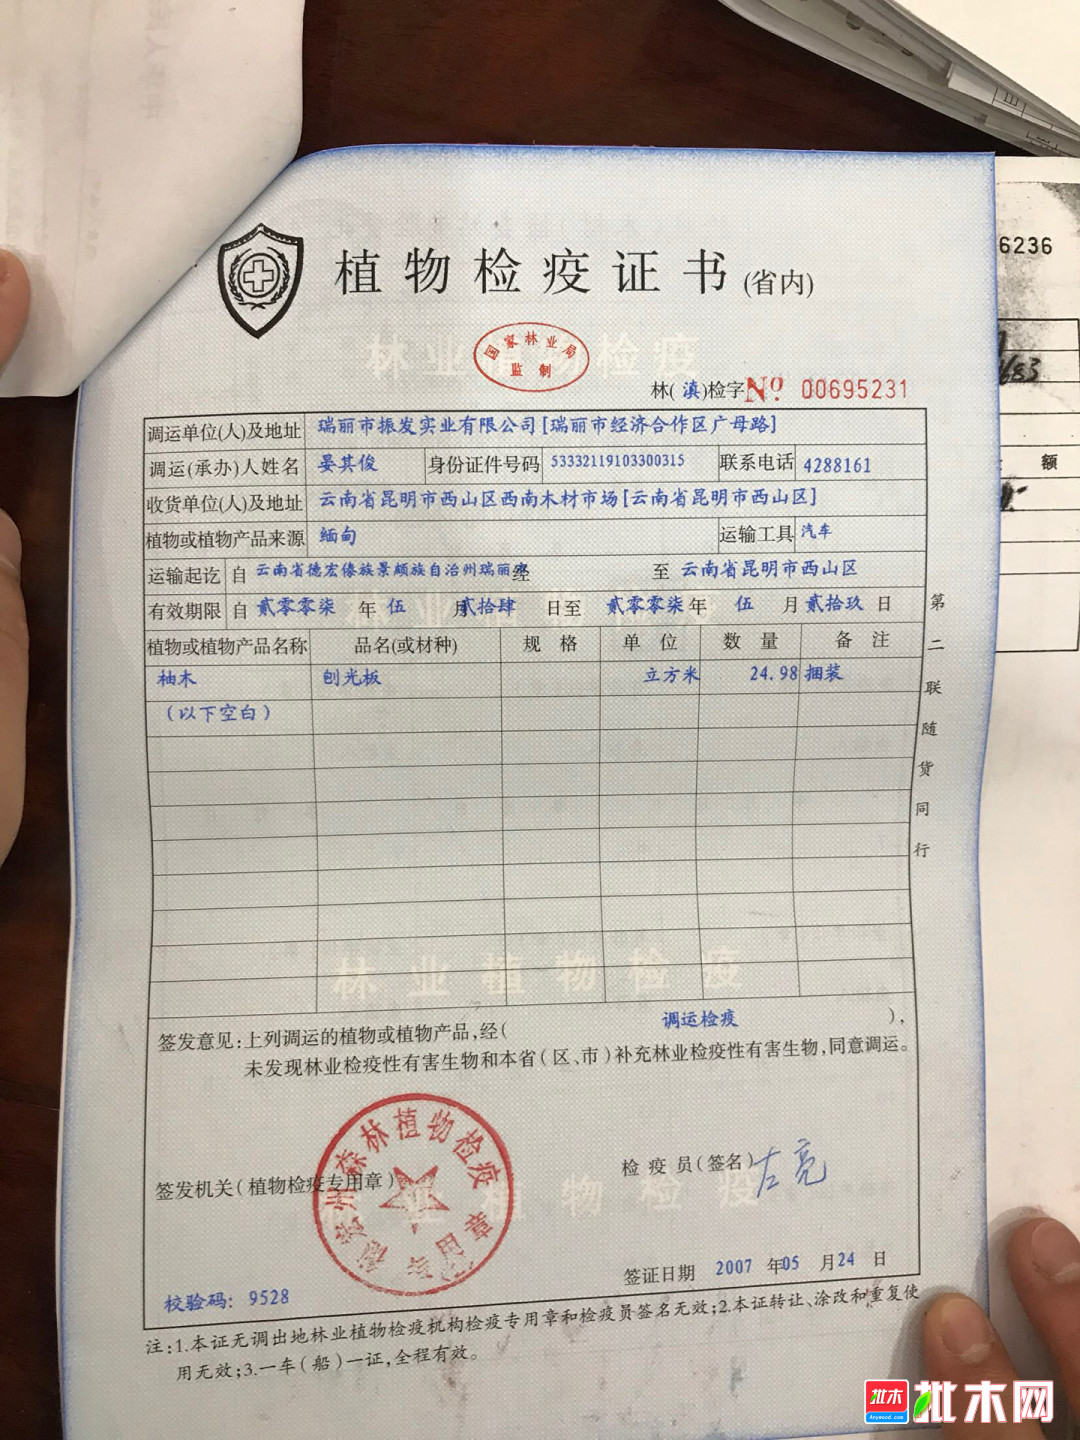 植物检疫证书(省内)
国家林业局
监制
林(滇)检字 № 00695231
调运单位(人)及地址 瑞丽市振发实业有限公司[瑞丽市经济合作区广母路]
调运(承办)人姓名 晏其俊 身份证件号码 53332119103300315 联系电话 4288161
收货单位(人)及地址 云南省昆明市西山区西南木材市场[云南省昆明市西山区]
植物或植物产品来源 缅甸 运输工具 汽车
运输起讫 自 云南省德宏傣族景颇族自治州瑞丽市 经 至 云南省昆明市西山区
有效期限 自 贰零零柒 年 伍 月 贰拾肆 日至 贰零零柒 年 伍 月 贰拾玖 日
植物或植物产品名称 品名(或材种) 规格 单位 数量 备注
柚木 刨光板 立方米 24.98 捆装
(以下空白)
第二联随货同行
签发意见:上列调运的植物或植物产品,经( 调运检疫 ),
未发现林业检疫性有害生物和本省(区、市)补充林业检疫性有害生物,同意调运。
签发机关(植物检疫专用章) 检疫员(签名) 左亮
签证日期 2007 年 05 月 24 日
校验码: 9528
注:1.本证无调出地林业植物检疫机构检疫专用章和检疫员签名无效;2.本证转让、涂改和重复使
用无效;3.一车(船)一证,全程有效。
林业植物检疫
林业植物检疫
林业植物检疫
林业植物检疫
州森林植物检疫
6236
额
批木
Anywood.com
批木网